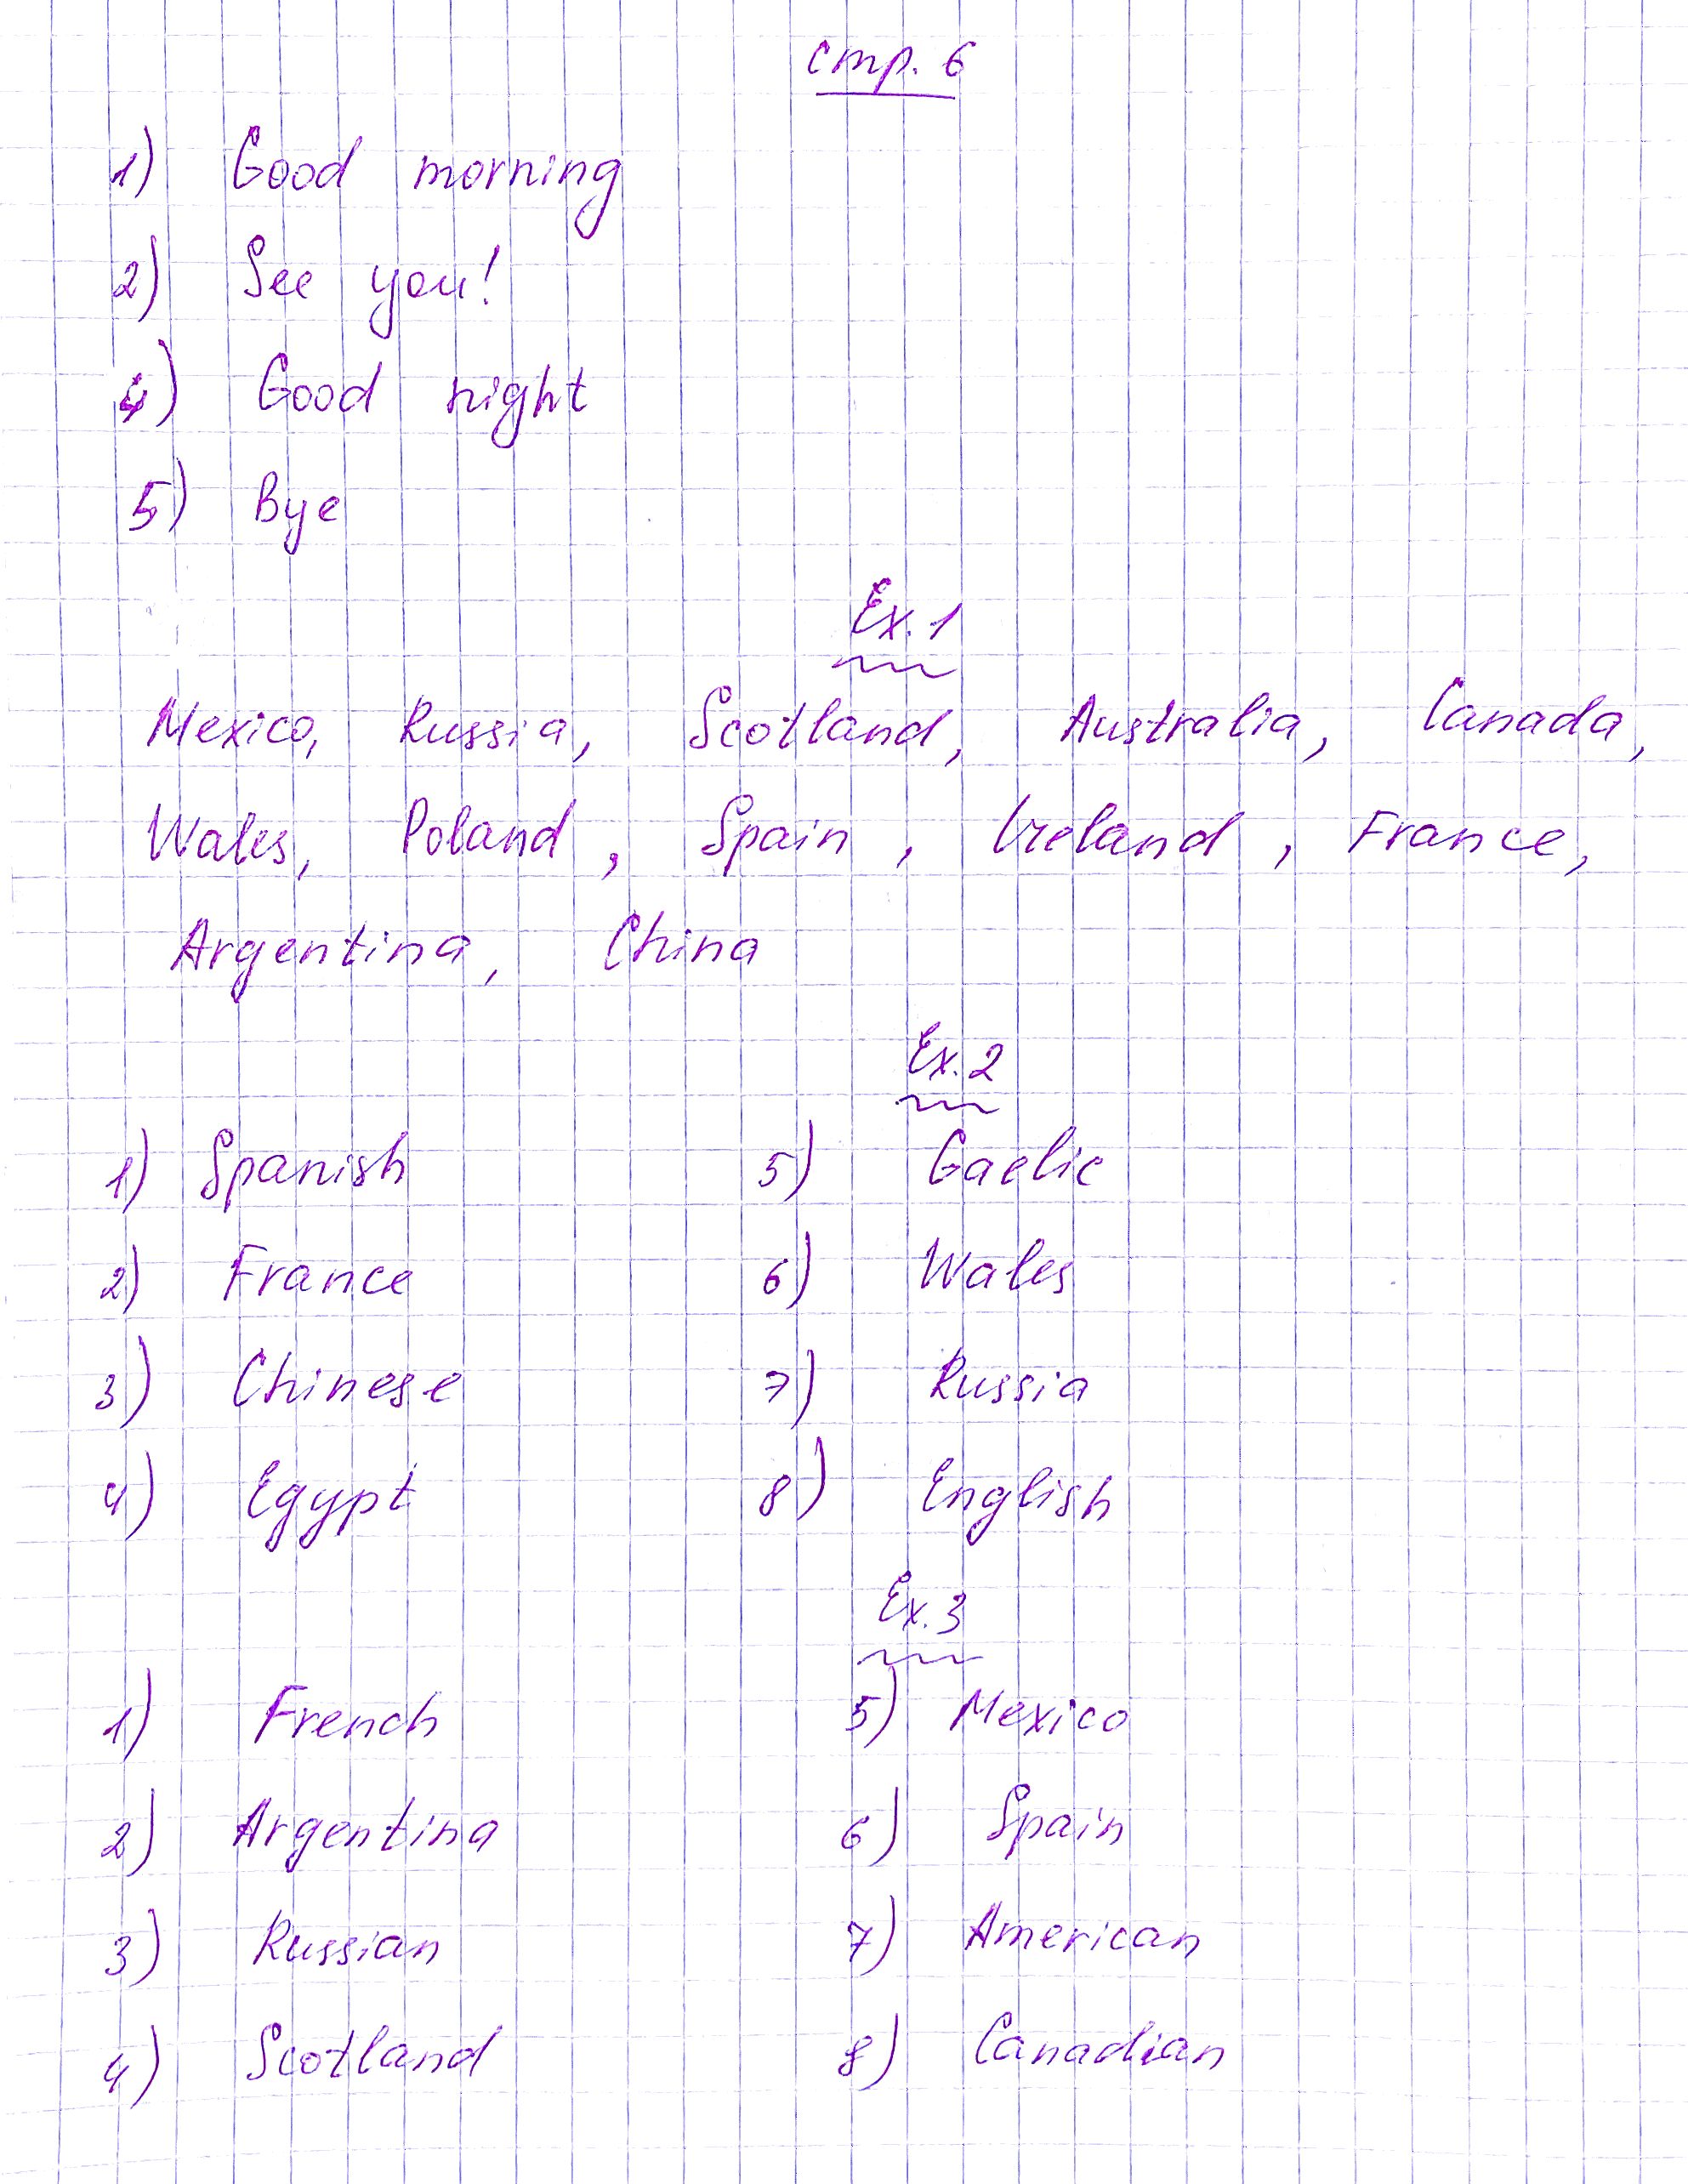 стр. 6
1) Good morning
2) See you!
4) Good night
5) Bye
Ex. 1
Mexico, Russia, Scotland, Australia, Canada,
Wales, Poland, Spain, Ireland, France,
Argentina, China
Ex. 2
1) Spanish 5) Gaelic
2) France 6) Wales
3) Chinese 7) Russia
4) Egypt 8) English
Ex. 3
1) French 5) Mexico
2) Argentina 6) Spain
3) Russian 7) American
4) Scotland 8) Canadian